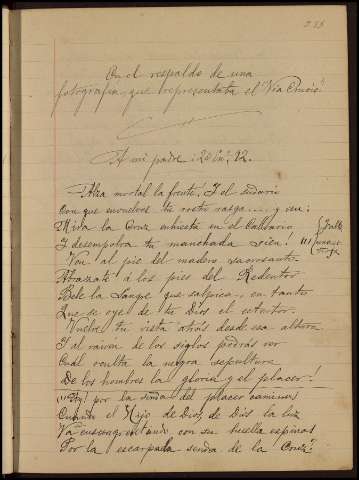 En el respaldo de una
fotografía, que representaba el "Via Crucis"
A mi padre. 82.
Alza mortal la frente! I el sudario
Con que envuelves tu rostro rasga...., y ven:
Mira la Cruz enhiesta en el Calvario
I desempolva tu manchada sien! (1)
Ven al pié del madero sacrosanto
Abrázate á los piés del Redentor
Bebe la Sangre que salpica.. en tanto
Que se oye de tu Dios el estertor.
Vuelve tu vista atrás desde esa altura
I al raivén de los siglos podrás ver
Cuál oculta la negra sepultura
De los hombres la gloria y el placer!
por la senda del placer caminas
Cuando el Hijo de Dios, de Dios la luz
Va ensangrentando con su huella espinas
Por la escarpada senda de la Cruz?